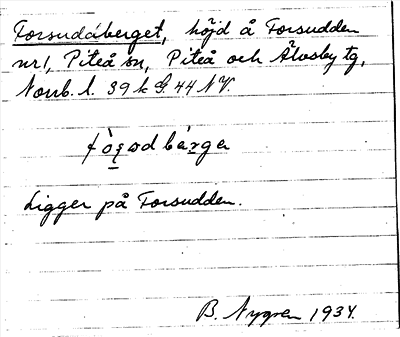 Forsudåberget, höjd å Forsudden
nr 1, Piteå sn, Piteå och Älvsby tg,
Norrb. l. 39 k G 44 NV.
Ligger på Forsudden.
B. Nygren 1934.